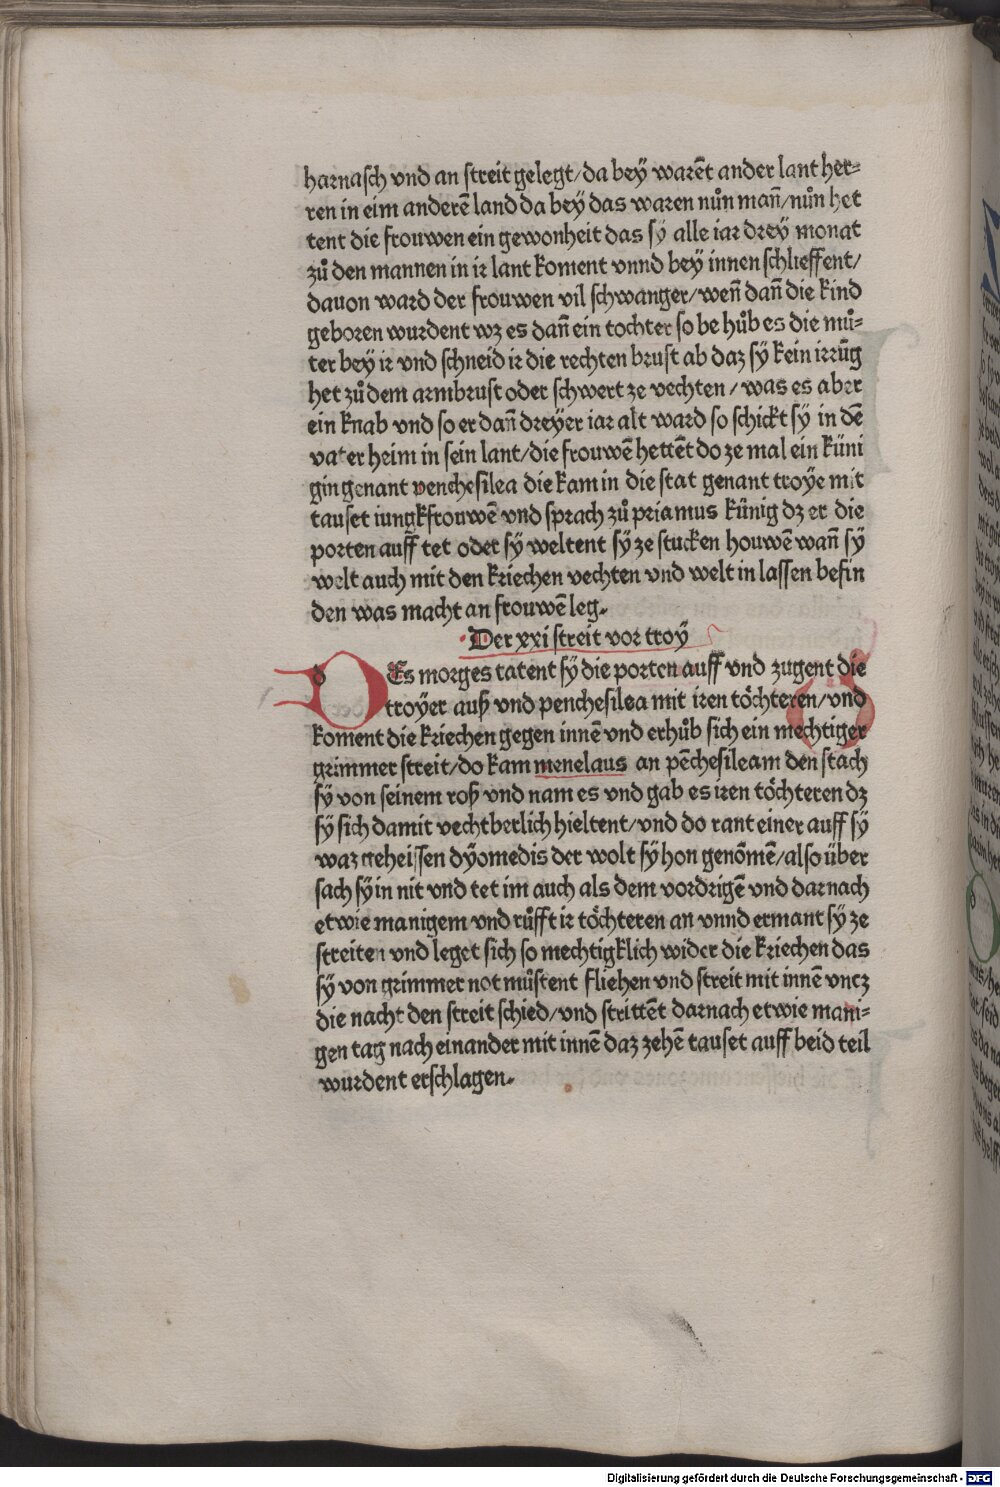 harnasch vnd an streit gelegt/da beÿ warēt ander lant her-
ren in eim anderē land da beÿ das waren nůn mañ/nůn het
tent die frouwen ein gewonheit das sÿ alle iar dreÿ monat
zů den mannen in ir lant koment vnnd beÿ innen schlieffent/
dauon ward der frouwen vil schwanger/weñ dañ die kind
geboren wurdent wz es dañ ein tochter so be hůb es die můͦ-
ter beÿ ir vnd schneid ir die rechten brust ab daz sÿ kein irrūg
het zů dem armbrust oder schwert ze vechten/was es aber
ein knab vnd so er dañ dreÿer iar alt ward so schickt sÿ in dē
vater heim in sein lant/die frouwē hettēt do ze mal ein küni
gin genant penchesilea die kam in die stat genant troÿe mit
tauset iungkfrouwē vnd sprach zů priamus künig dz er die
porten auff tet oder sÿ weltent sÿ ze stucken houwē wañ sÿ
welt auch mit den kriechen vechten vnd welt in lassen befin
den was macht an frouwē leg.
Der xxi streit vor troÿ
DEs morges tatent sÿ die porten auff vnd zugent die
troÿer auß vnd penchesilea mit iren töchteren/vnd
koment die kriechen gegen innē vnd erhůb sich ein mechtiger
grimmer streit/do kam menelaus an pēchesileam den stach
sÿ von seinem roß vnd nam es vnd gab es iren töchteren dz
sÿ sich damit vechtberlich hieltent/vnd do rant einer auff sÿ
waz geheissen dÿomedis der wolt sÿ hon genōmē/also über
sach sÿ in nit vnd tet im auch als dem vordrigē vnd darnach
etwie manigem vnd růfft ir töchteren an vnnd ermant sÿ ze
streiten vnd leget sich so mechtigklich wider die kriechen das
sÿ von grimmer not můstent fliehen vnd streit mit innē vncz
die nacht den streit schied/vnd strittēt darnach etwie mani-
gen tag nach einander mit innē daz zehē tauset auff beid teil
wurdent erschlagen.
Digitalisierung gefördert durch die Deutsche Forschungsgemeinschaft - DFG